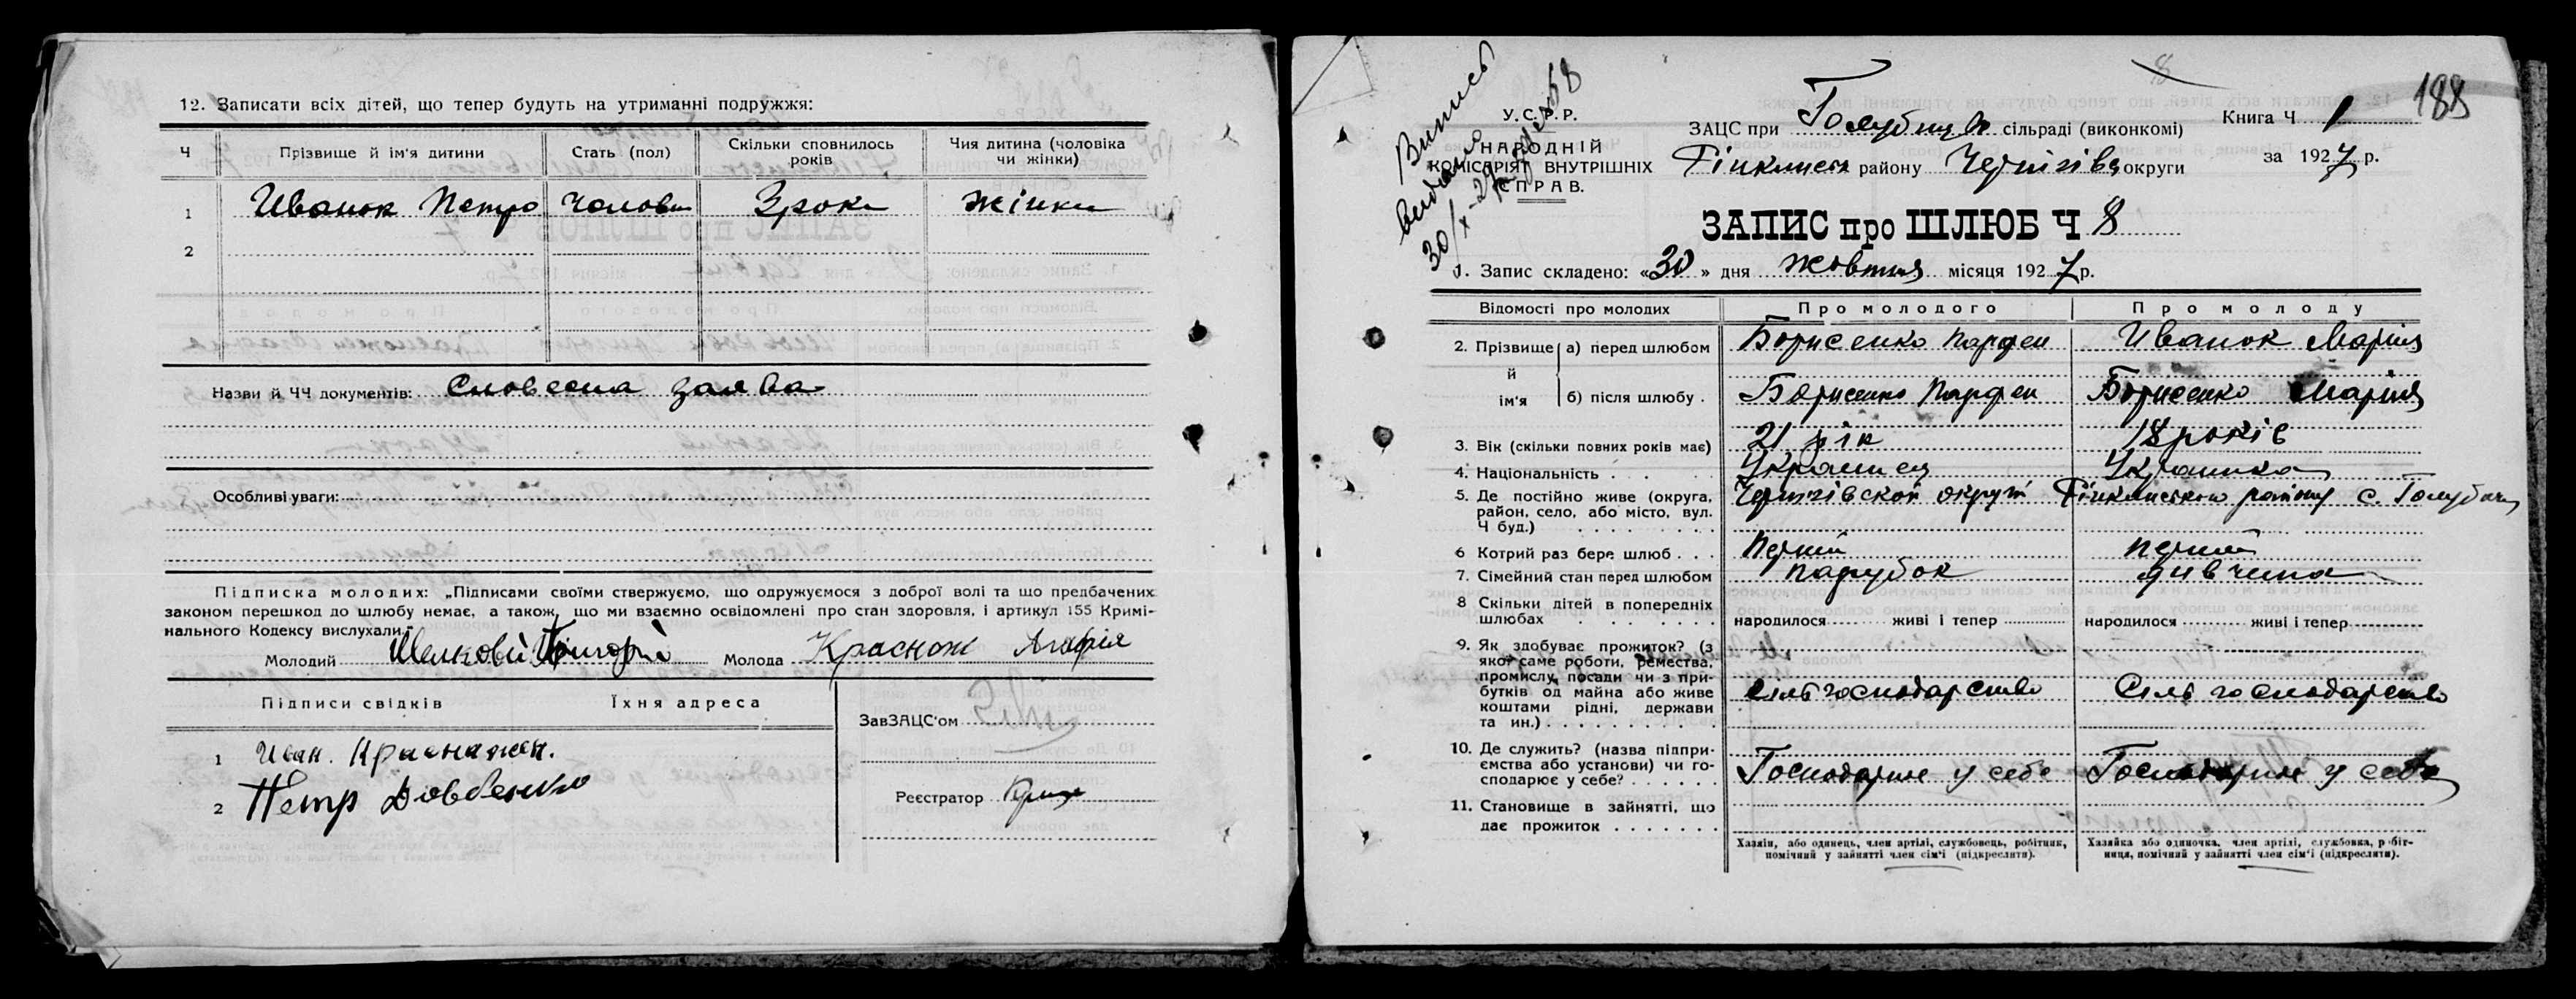 12. Записати всіх дітей, що тепер будуть на утриманні подружжя:
Ч Прізвище й ім'я дитини Стать (пол) Скільки сповнилось років Чия дитина (чоловіка чи жінки)
1 Иванок Петро чолові 3 роки жінки
2
Назви й ЧЧ документів: Словесна заява
Особливі уваги:
Підписка молодих: „Підписами своїми стверджуємо, що одружуємося з доброї волі та що предбачених
законом перешкод до шлюбу немає, а також, що ми взаємно освідомлені про стан здоровля, і артикул 155 Кримі-
нального Кодексу вислухали."
Молодий Шелковій Григорій Молода Краснож Агафія
Підписи свідків Їхня адреса
ЗавЗАЦС'ом
1 Иван. Краснажен.
2 Петр Довбенко
Реєстратор
Выпись
видана
30/X-27
188
У.С.Р.Р.
НАРОДНІЙ
КОМІСАРІЯТ ВНУТРІШНІХ
СПРАВ.
ЗАЦС при Голубицьк сільраді (виконкомі) Книга Ч 1
Ріпкинськ району Чернігівс округи за 1927 р.
ЗАПИС про ШЛЮБ Ч 8
1. Запис складено: «30» дня жовтня місяця 1927 р.
Відомості про молодих Про молодого Про молоду
2. Прізвище й ім'я а) перед шлюбом Борисенко Парфен Иванок Марія
б) після шлюбу. Борисенко Парфен Борисенко Марія
3. Вік (скільки повних років має) 21 рік 18 років
4. Національність Українец Українка
5. Де постійно живе (округа, район, село, або місто, вул. Ч буд.) Чернігівской округи Ріпкинського району с. Голубичі
6 Котрий раз бере шлюб Перший перший
7. Сімейний стан перед шлюбом парубок дивчина
8 Скільки дітей в попередніх шлюбах народилося живі і тепер народилося живі і тепер
9. Як здобуває прожиток? (з якої саме роботи, ремества, промислу, посади чи з при-
бутків од майна або живе коштами рідні, держави та ин.) сільгосподарство Сільгосподарство
10. Де служить? (назва підпри-
ємства або установи) чи го-
сподарює у себе? Господарює у себе Господарює у себе
11. Становище в зайнятті, що
дає прожиток
Хазяін, або одинець, член артілі, службовець, робітник,
помічний у зайнятті член сім'ї (підкреслити).
Хазяйка або одиночка, член артілі, службовка, робіт-
ниця, помічний у зайнятті член сім'ї (підкреслити).